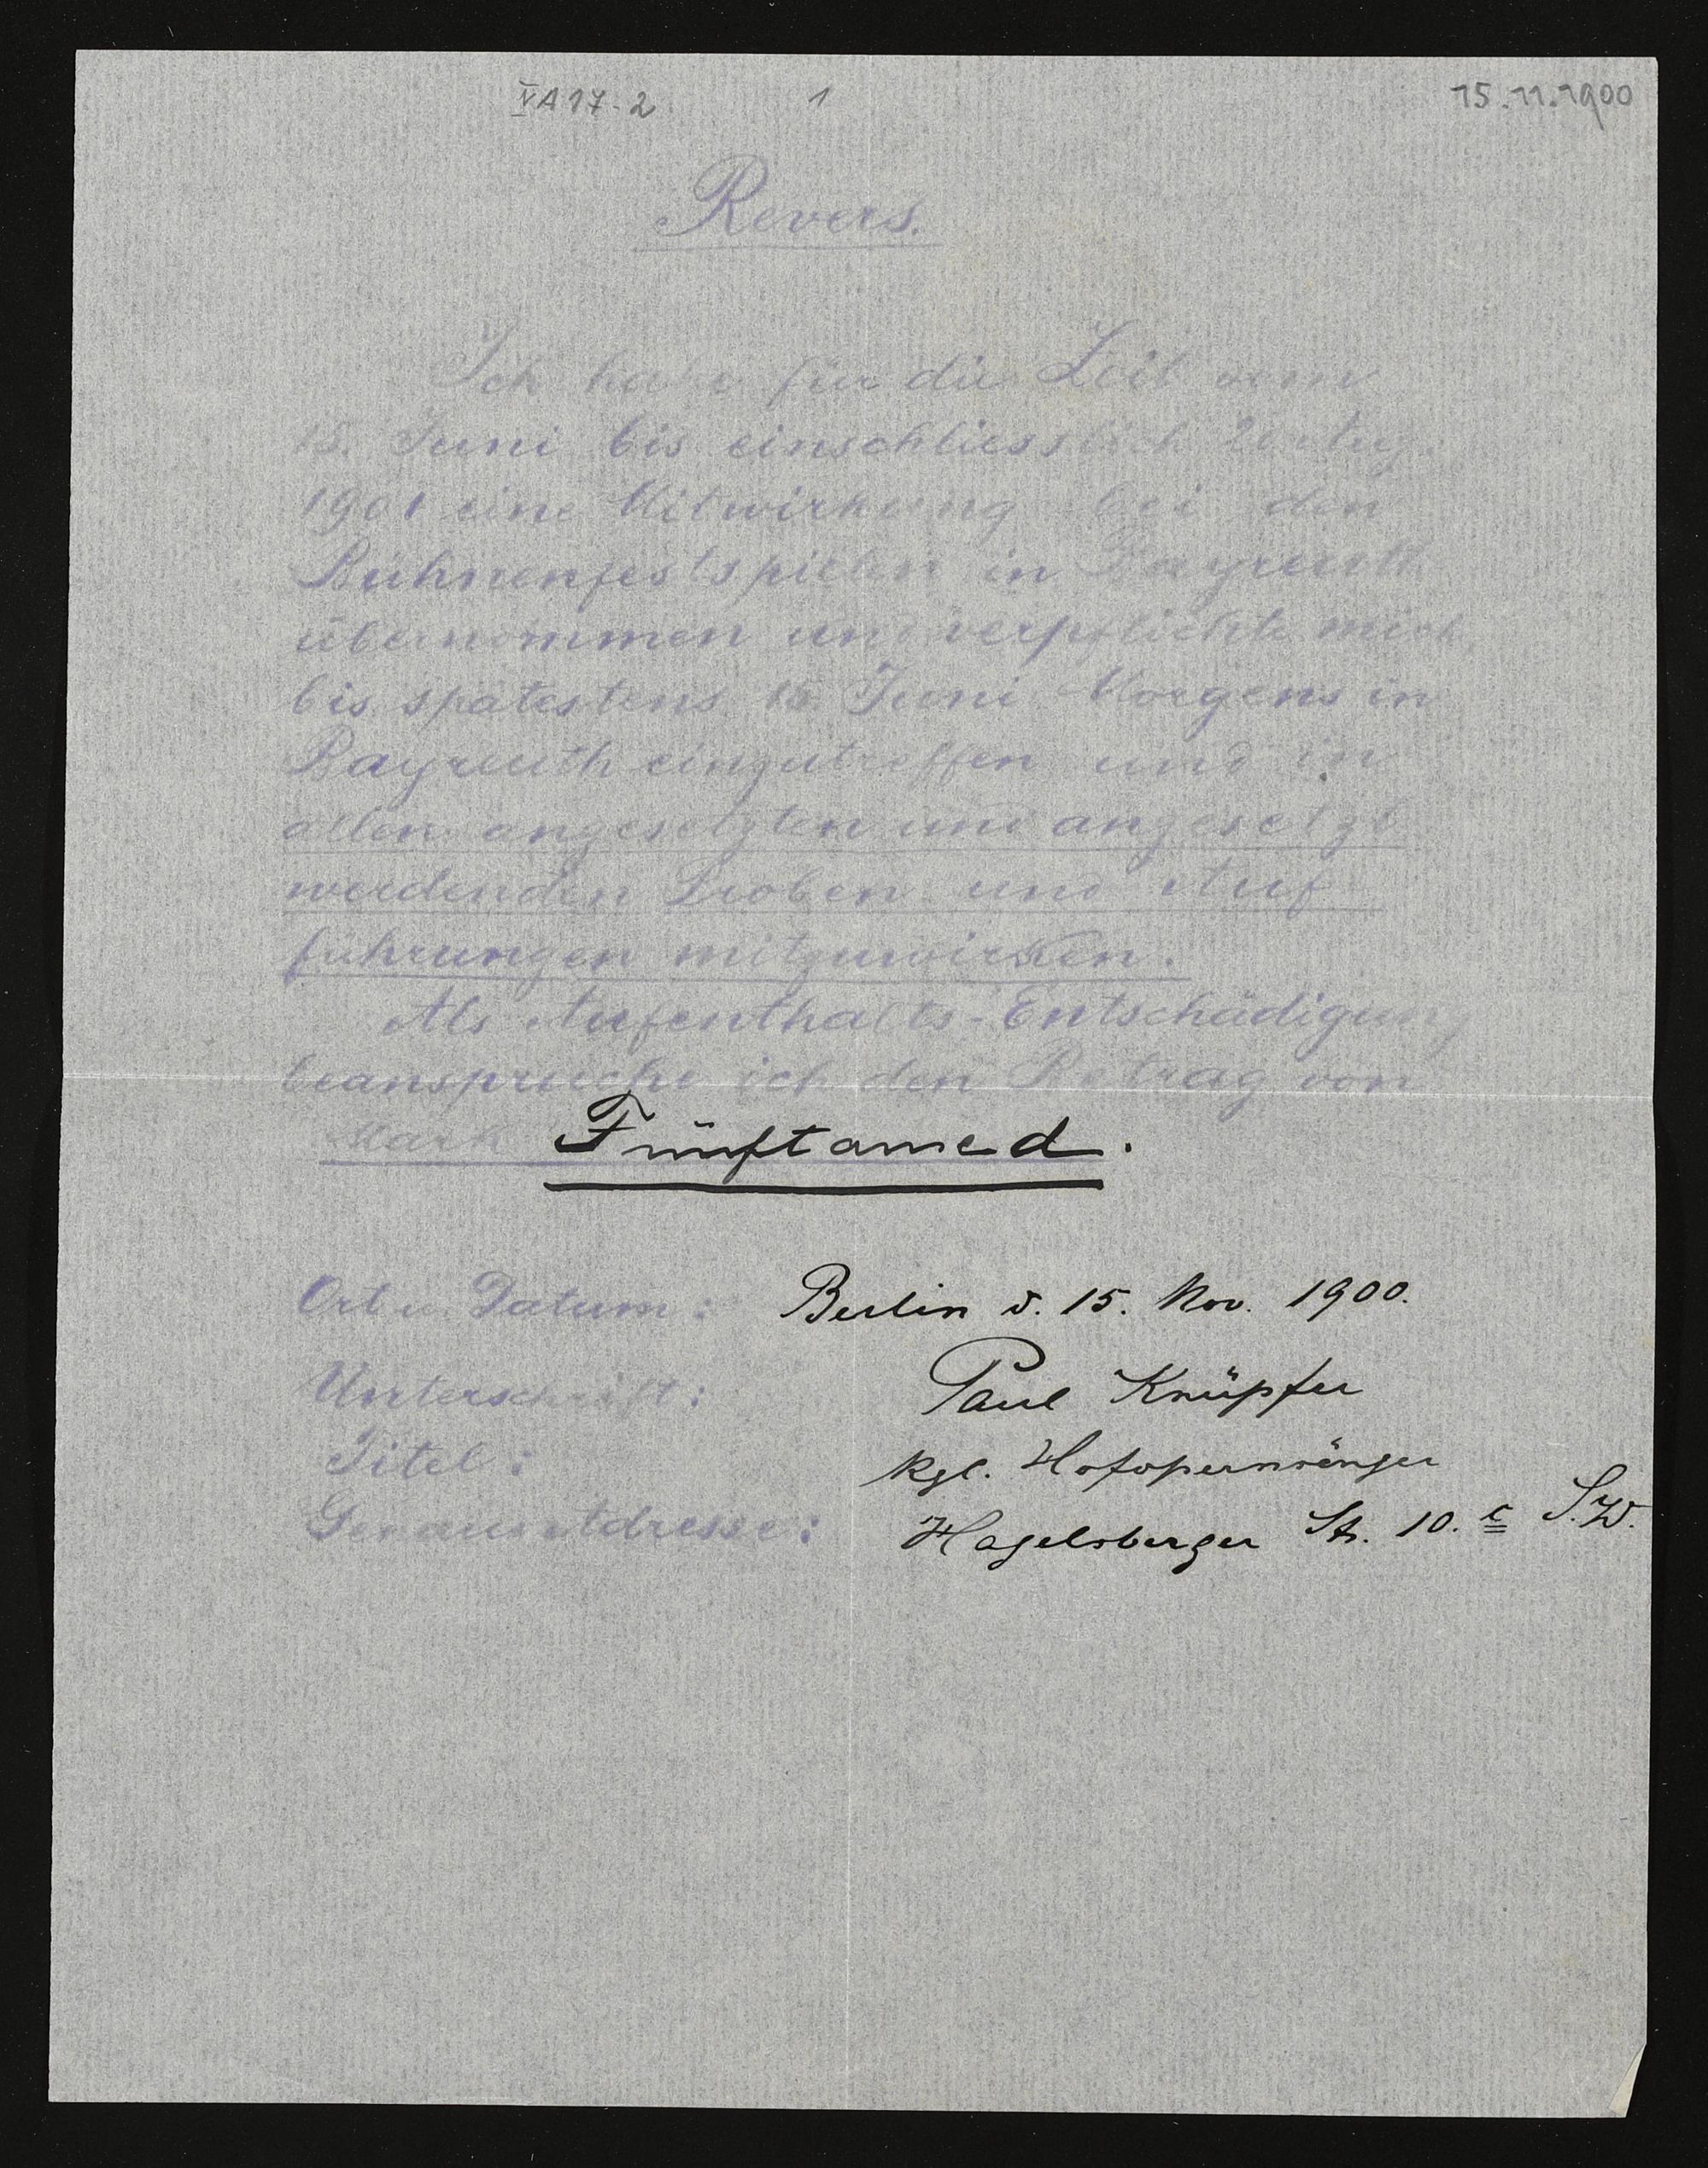 IV A 17-2 1 15.11.1900
Revers.
Ich habe für die Zeit vom
15. Juni bis einschliesslich 20 Aug.
1901 eine Mitwirkung bei den
Bühnenfestspielen in Bayreuth
übernommen und verpflichte mich,
bis spätestens 15. Juni Morgens in
Bayreuth einzutreffen und in
allen angesetzten und angesetzt
werdenden Proben und Auf
führungen mitzuwirken.
Als Aufenthalts-Entschädigung
beanspruche ich den Betrag von
Mark Fünftausend.
Ort u. Datum: Berlin d. 15. Nov. 1900.
Unterschrift: Paul Knüpfer
Titel: Kgl. Hofopernsänger
Genaue Adresse: Hagelsberger Str. 10. c S.W.